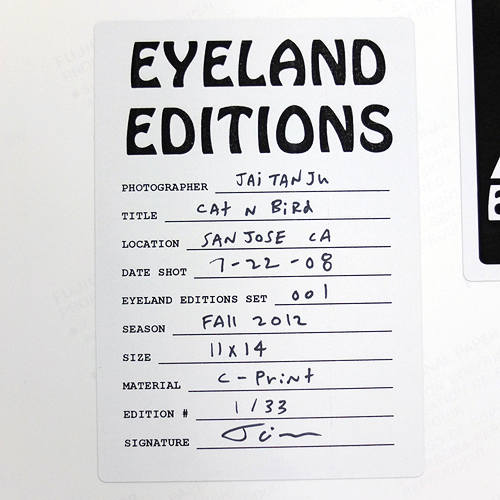 EYELAND
EDITIONS
PHOTOGRAPHER JAi TANJU
TITLE CAt N BiRd
LOCATION SAN JOSE CA
DATE SHOT 7-22-08
EYELAND EDITIONS SET 001
SEASON FAll 2012
SIZE 11x14
MATERIAL C-Print
EDITION # 1/33
SIGNATURE